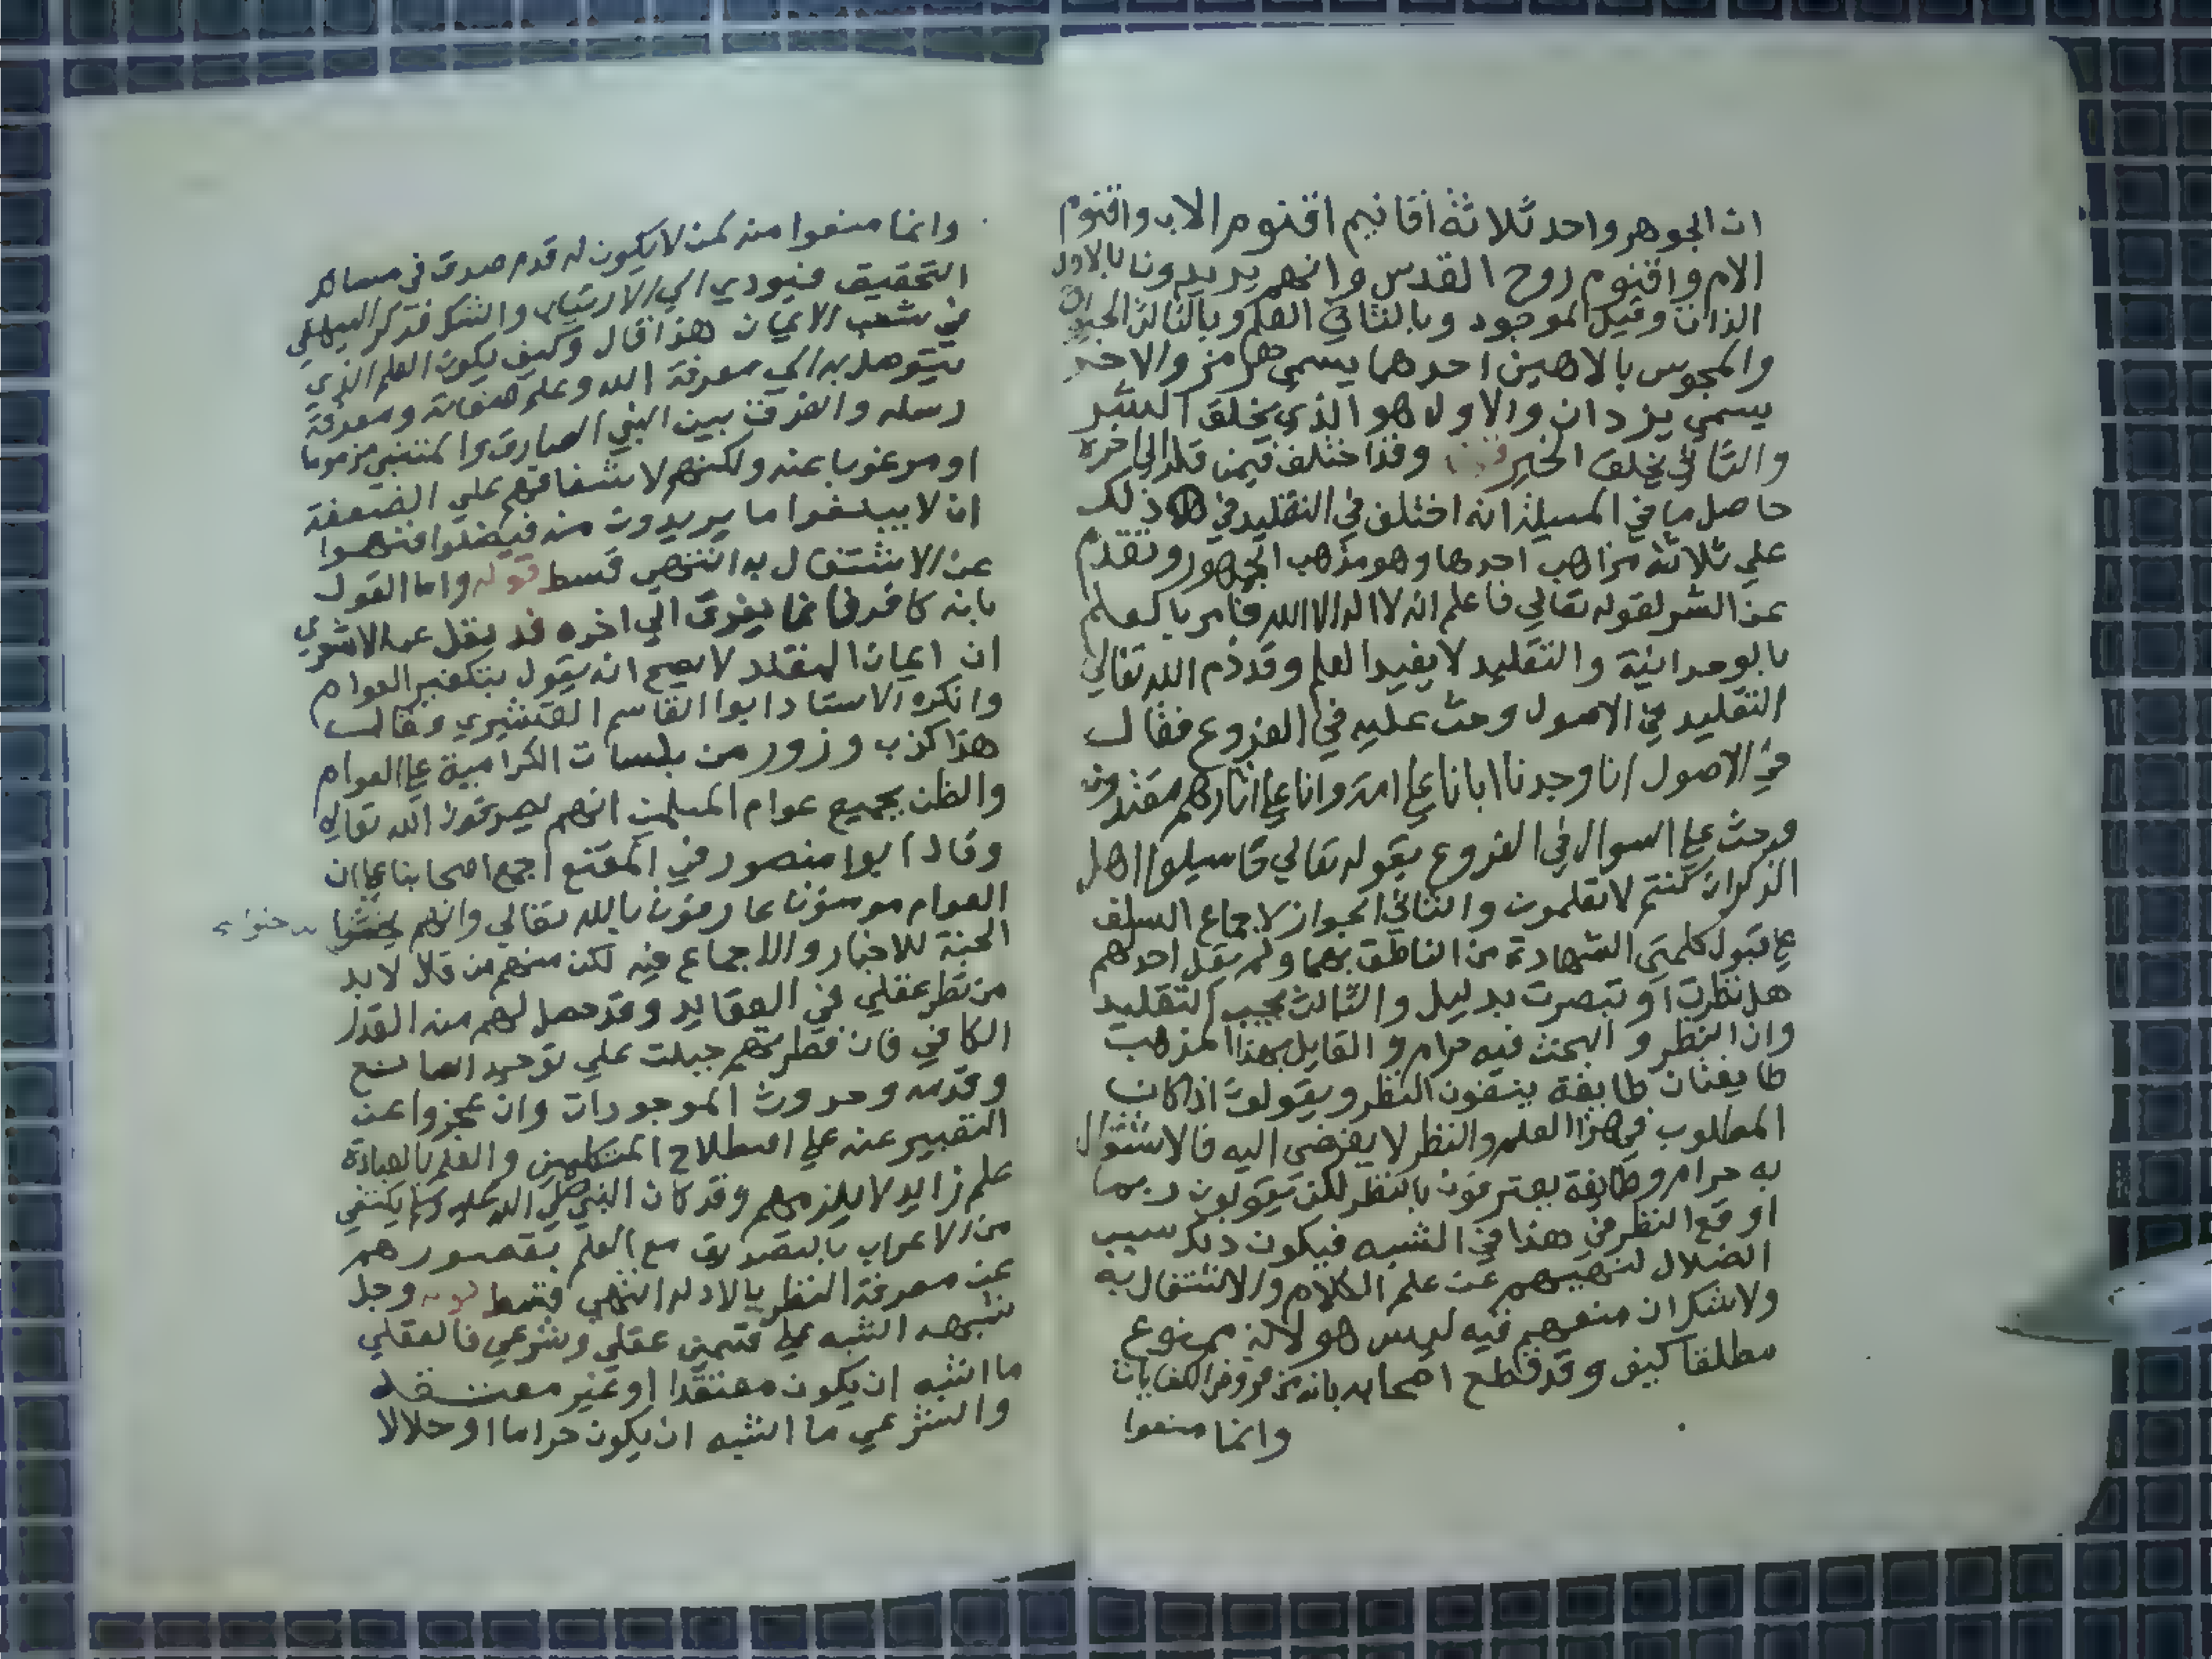 ان الجوهر واحد ثلاثة اقانيم اقنوم الاب واقنوم
الام واقنوم روح القدس وانهم يريدونا بالاول
الذات وقيل الموجود وبالثاني العلم وبالثالث الحيوان
والمجوس بالاهين احدهما يسمي هرمز والاخر
يسمي يزدان والاول هو الذي يخلق الشر
والثاني يخلق الخير وقد اختلف فيمن قلد الي اخره
حاصل ما في المسيلة انه اختلف في التقليد في ذلك
علي ثلاثة مذاهب احدها وهو مذهب الجمهور وتقدم
عن الشر لقوله تعالي فاعلم انه لا اله الا الله فامر بالعلم
بالوحدانية والتقليد لا يفيد العلم وقد ذم الله تعالي
التقليد في الاصول وحث عليه في الفروع فقال
في الاصول انا وجدنا ابانا علي امة وانا علي اثارهم مقتدون
وحث علي السوال في الفروع بقوله تعالي فاسيلوا اهل
الذكر ان كنتم لا تعلمون والثاني الجواز لاجماع السلف
علي قبول كلمتي الشهادة من الناطق بهما ولم يقل احدهم
هل نظرت او تبصرت بدليل والثالث يجب التقليد
وان النظر والبحث فيه حرام والقايل بهذا المذهب
طايفتان طايفة ينفون النظر ويقولون اذا كان
المطلوب في هذا العلم والنظر لا يفضي اليه فالاشتغال
به حرام وطايفة يعترفون بالنظر لكن يقولون ربما
اوقع النظر في هذا في الشبه فيكون ذلك سبب
الضلال لنهيهم عن علم الكلام والاشتغال به
ولا شك ان منعهم فيه ليس هو لانه ممنوع
مطلقا كيف وقد قطع اصحابه بانه من فروض الكفايات
وانما منعوا
وانما منعوا منه لمن لا يكون له قدم صدق في مسالك
التحقيق فيودي الي الارتياب والشك فذكر البيهقي
في شعب الايمان هذا قال وكيف يكون العلم الذي
يتوصل به الي معرفة الله وعلم صفاته ومعرفة
رسله والفرق بين النبي الصادق والمتنبي مذموما
او مرغوبا عنه ولكنهم لاشفاقهم علي الضعفة
ان لا يبلغوا ما يريدون منه فيضلوا فنهوا
عن الاشتغال به انتهي قسط قوله واما القول
بانه كافر فانما يعزي الي اخره قد نقل عن الاشعري
ان ايمان المقلد لا يصح انه يقول بتكفير العوام
وانكره الاستاد ابوا القاسم القشيري وقال
هذا كذب وزور من تلبسات الكرامية علي العوام
والظن بجميع عوام المسلمين انهم يصدقون الله تعالي
وقال ابوا منصور في المقنع اجمع اصحابنا علي ان
العوام مومنون عارفون بالله تعالي وانهم
الجنة للاخبار والاجماع فيه لكن منهم من قال لا بد
من نظر عقلي في العقايد وقد حصل لهم منه القدر
الكافي فان فطرتهم جبلت علي توحيد الصانع
وقدمه وحدوث الموجودات وان عجزوا عن
التعبير عنه علي اصطلاح المتكلمين والعلم بالعبادة
علم زايد لا يلزمهم وقد كان النبي صلي الله عليه وسلم يكتفي
من الاعراب بالتصديق مع العلم بقصورهم
عن معرفة النظر بالادلة انتهي قسط قوله وجل
شبهه الشبه علي قسمين عقلي وشرعي فالعقلي
ما اشبه ان يكون معتقدا او غير معتقد
والشرعي ما اشبه ان يكون حراما او حلالا